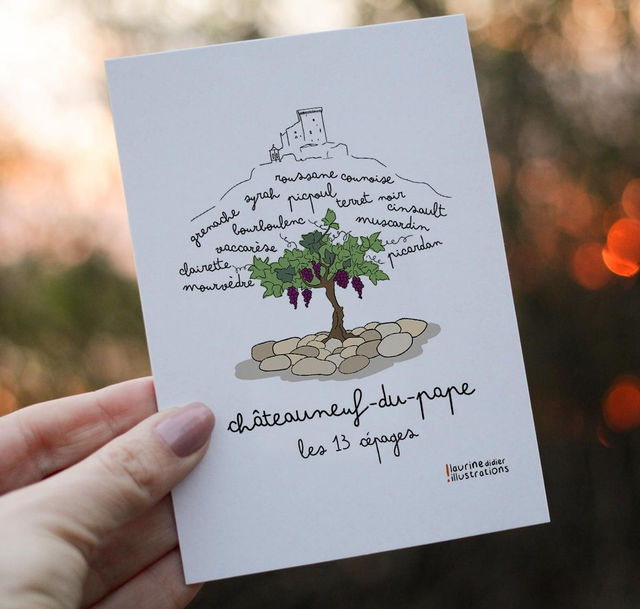 roussane counoise
syrah picpoul terret noir
grenache bourboulenc muscardin cinsault
vaccarèse picardan
clairette
mourvèdre
châteauneuf-du-pape
les 13 cépages
laurine didier
illustrations